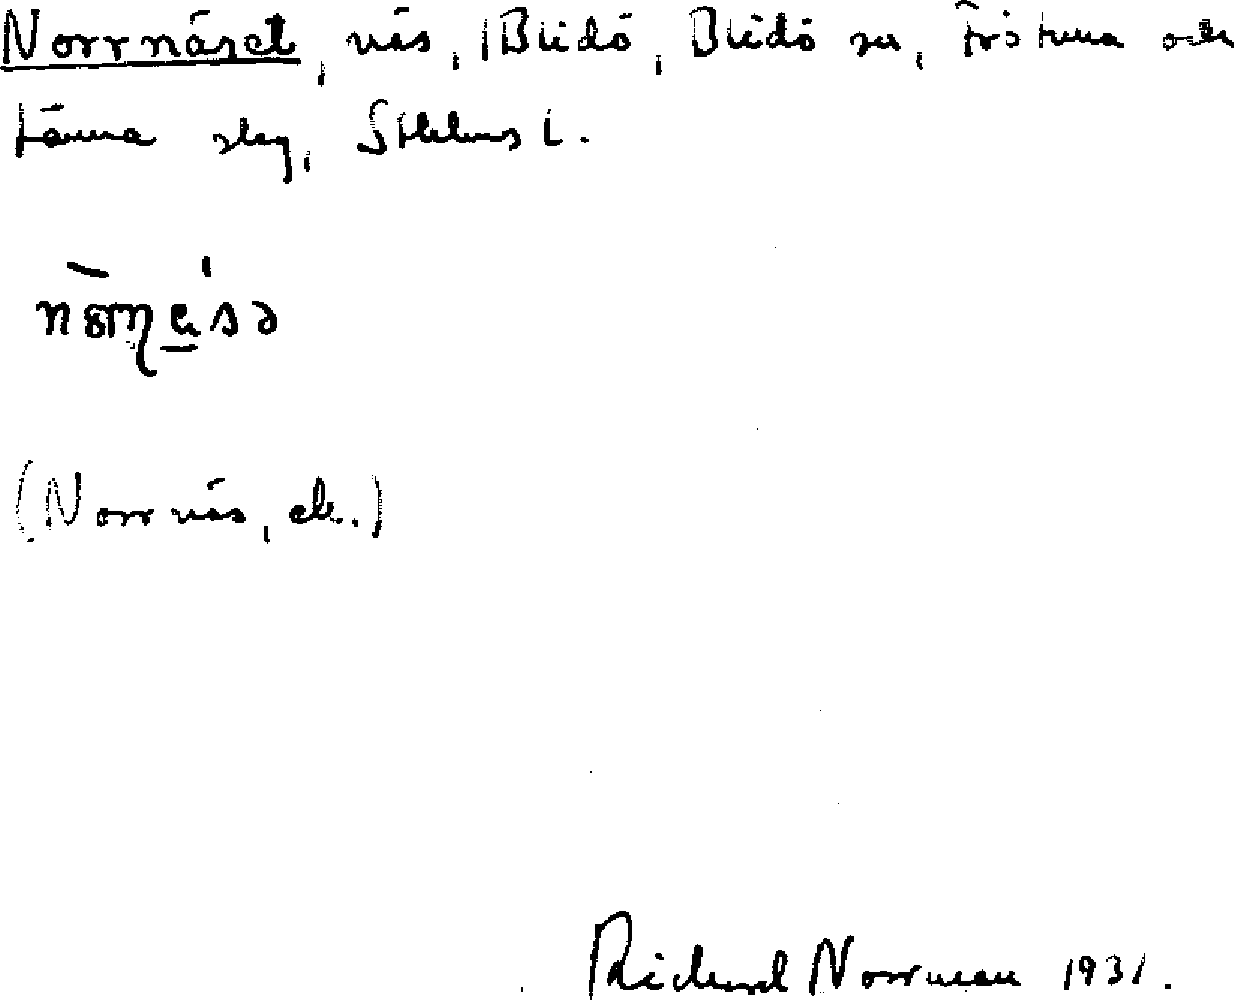 Norrnäset, näs, Blidö, Blidö sn, Frötuna och
Länna slg, Sthlms l.
(Norrnäs, ek.)
Richard Norrman 1931.